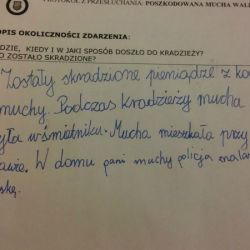 PROTOKÓŁ Z PRZESŁUCHANIA: POSZKODOWANA MUCHA WAL
OPIS OKOLICZNOŚCI ZDARZENIA:
DZIE, KIEDY I W JAKI SPOSÓB DOSZŁO DO KRADZIEŻY?
O ZOSTAŁO SKRADZIONE?
Zostały skradzione pieniądze z ko
muchy. Podczas kradzierzy mucha
yła w śmietniku. Mucha mieszkała przy
awie. W domu pani muchy policja znala
skę.